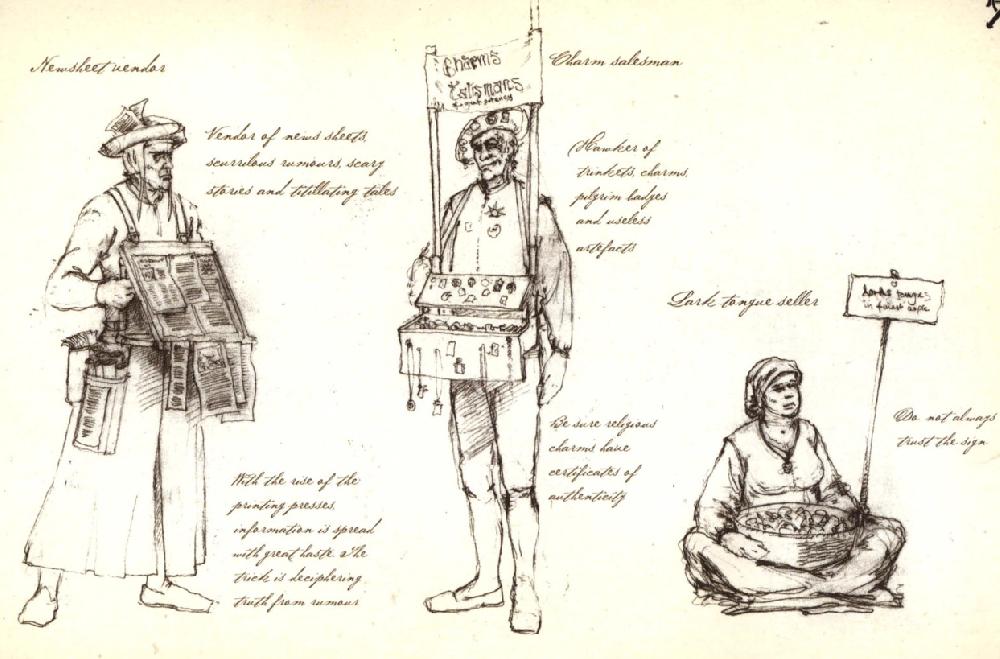 Newsheet vendor
Vendor of news sheets,
scurrilous rumours, scary
stories and titillating tales
With the rise of the
printing presses,
information is spread
with great haste. The
trick is deciphering
truth from rumour
Charms
Talismans
Charm salesman
Hawker of
trinkets, charms,
pilgrim badges
and useless
artefacts
Be sure religious
charms have
certificates of
authenticity
Lark tongue seller
Larks tongues
in finest aspic
Do not always
trust the sign